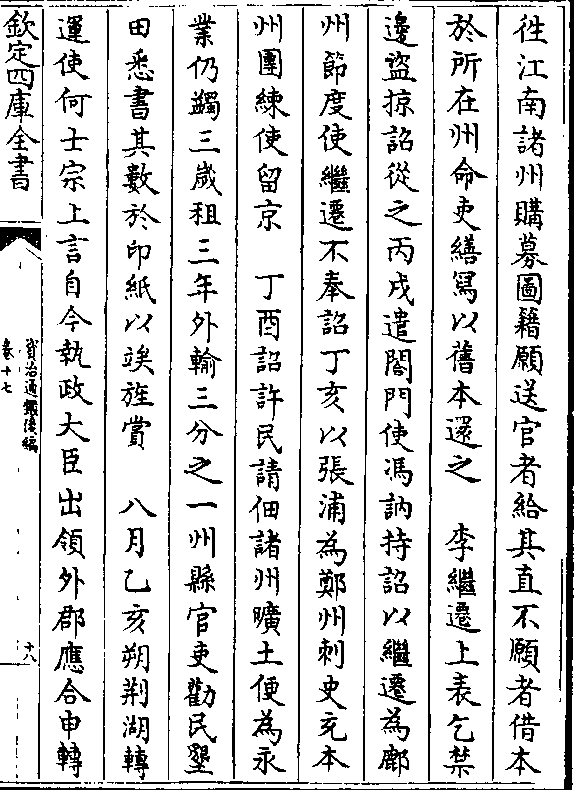 徃江南諸州購募圖籍願送官者給其直不願者借本
於所在州命吏繕寫以舊本還之　李繼遷上表乞禁
邊盜掠詔從之丙戌遣閤門使馮訥持詔以繼遷為鄜
州節度使繼遷不奉詔丁亥以張浦為鄭州刺史充本
州團練使留京　丁酉詔許民請佃諸州曠土便為永
業仍蠲三歲租三年外輸三分之一州縣官吏勸民墾
田悉書其數於印紙以竢旌賞　八月乙亥朔荆湖轉
運使何士宗上言自今執政大臣出領外郡應合申轉
欽定四庫全書
資治通鑑後編
卷十七
十八